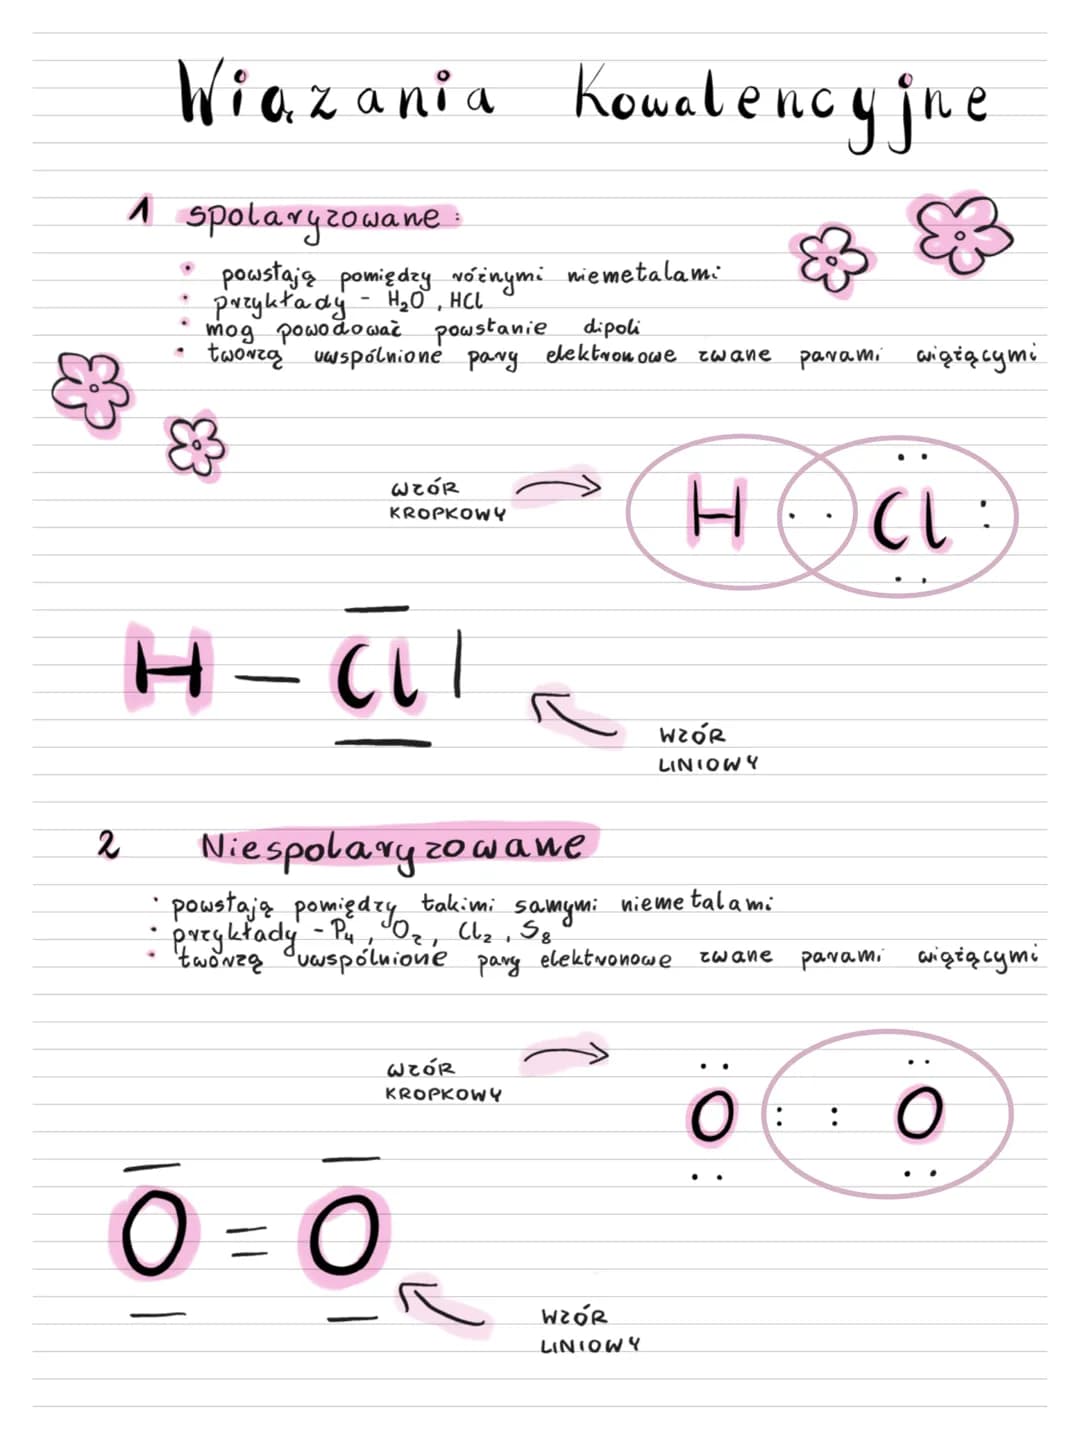 Wiązania Kowalencyjne
1 spolaryzowane:
• powstają pomiędzy różnymi niemetalami
• przykłady - H₂O, HCl
• mog powodować powstanie dipoli
• tworzą uwspólnione pary elektronowe zwane parami wiążącymi
WZÓR
KROPKOWY
H · · Cl :
H – Cl |
WZÓR
LINIOWY
2 Niespolaryzowane
• powstają pomiędzy takimi samymi niemetalami
• przykłady - P₄, O₂, Cl₂, S₈
• tworzą uwspólnione pary elektronowe zwane parami wiążącymi
WZÓR
KROPKOWY
O : : O
O = O
WZÓR
LINIOWY